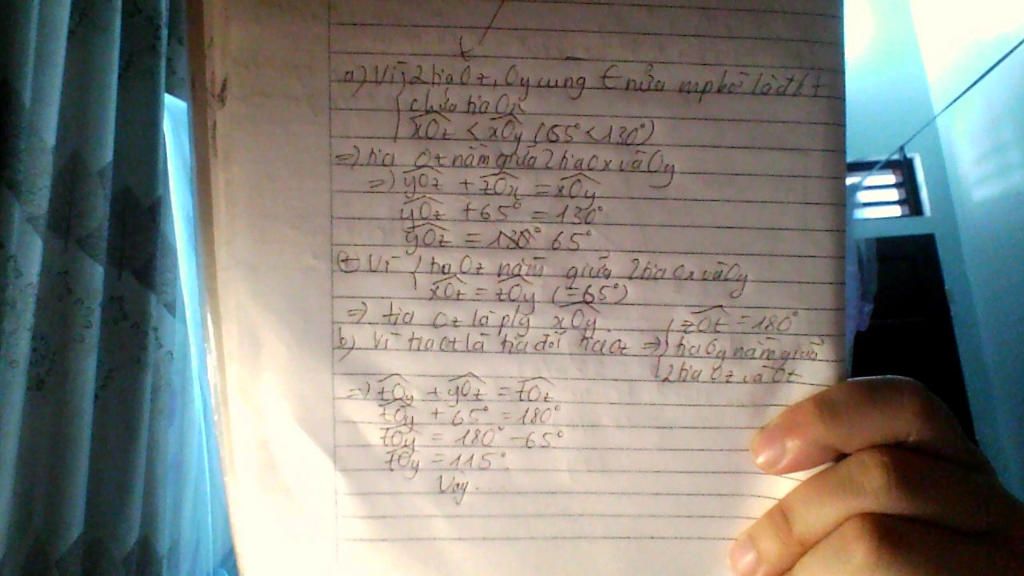 t
a) Vì { 2 tia Oz, Oy cùng ∈ nửa mp bờ là đt
chứa tia Ox
xOz < xOy (65° < 130°)
=> tia Oz nằm giữa 2 tia Ox và Oy
=> yOz + zOx = xOy
yOz + 65° = 130°
yOz = 65°
Vì { tia Oz nằm giữa 2 tia Ox và Oy
xOz = zOy (=65°)
=> tia Oz là plg xOy
b) Vì tia Ot là tia đối tia Oz => { zOt = 180°
tia Oy nằm giữa
2 tia Oz và Ot
=> tOy + yOz = tOz
tOy + 65° = 180°
tOy = 180° - 65°
tOy = 115°
Vậy.